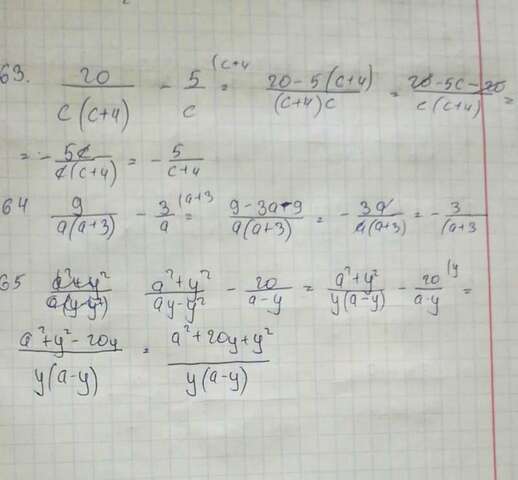 63. 20/(c(c+4)) - 5/c (c+4 = (20-5(c+4))/((c+4)c) = (20-5c-20)/(c(c+4)) =
= - 5c/(c(c+4)) = - 5/(c+4)
64 9/(a(a+3)) - 3/a (a+3 = (9-3a-9)/(a(a+3)) = - 3a/(a(a+3)) = - 3/(a+3
65 (a²+y²)/(ay-y²) - 20/(a-y) = (a²+y²)/(y(a-y)) - 20/(a-y) (y =
(a²+y²-20y)/(y(a-y)) = (a²+20y+y²)/(y(a-y))